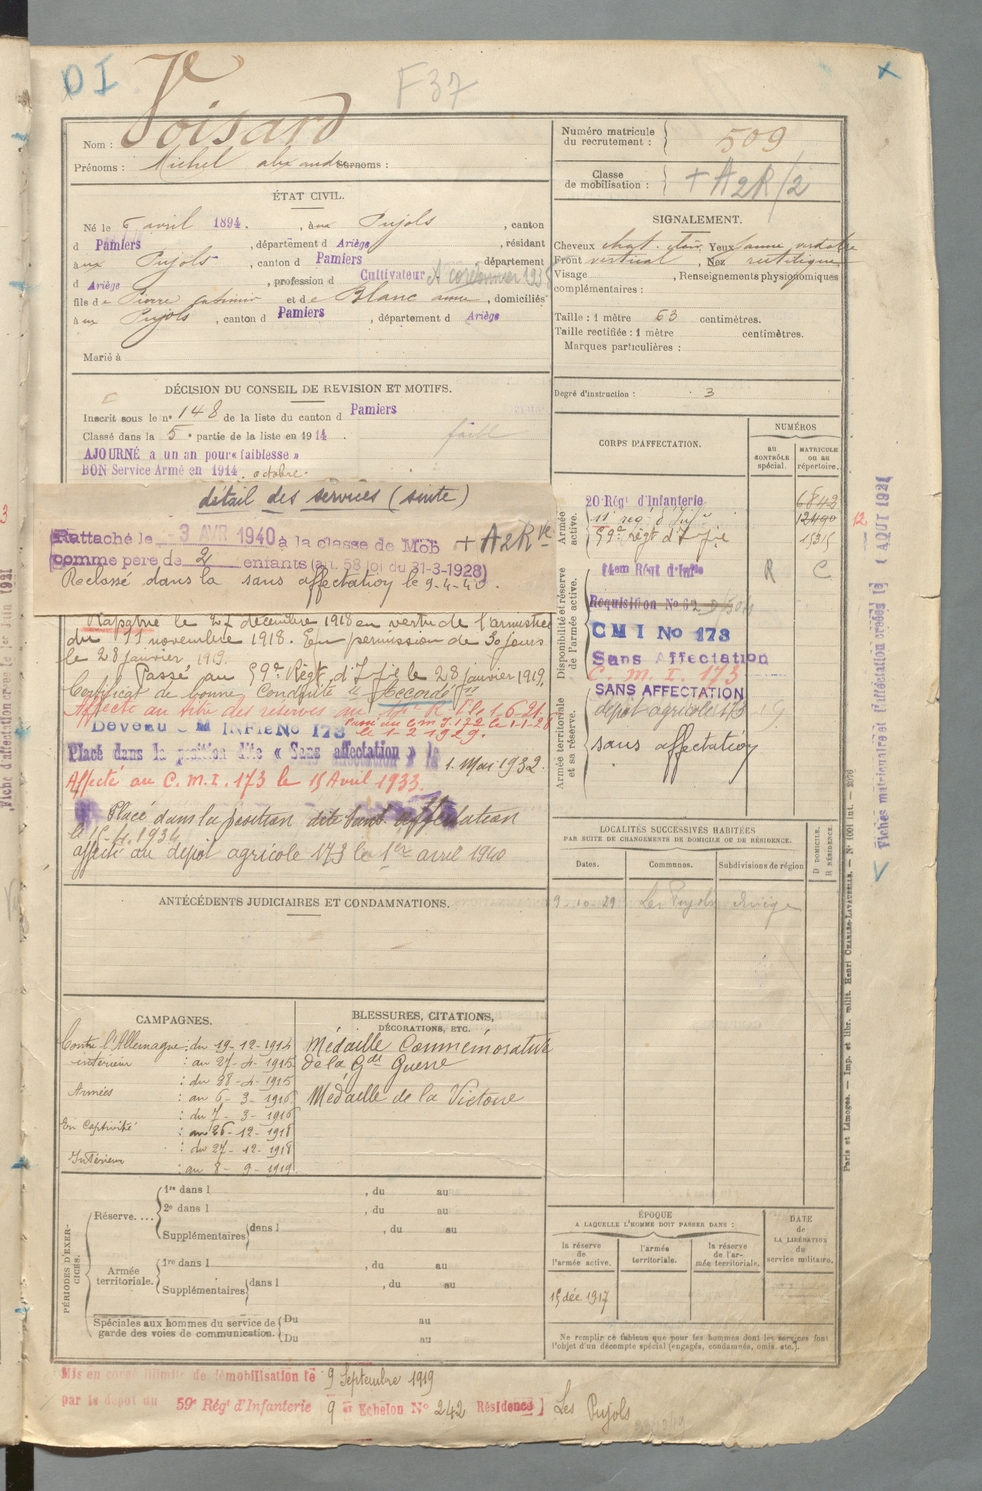 DI
F37
Nom : Voisard
Prénoms : Michel Surnoms :
Numéro matricule du recrutement : 509
Classe de mobilisation : + A2R/2
ÉTAT CIVIL.
Né le 6 avril 1894, à Pujols, canton
d Pamiers, département d Ariège, résidant
à Pujols, canton d Pamiers, département
d Ariège, profession d Cultivateur
fils de Pierre et de Blanc, domiciliés
à Pujols, canton d Pamiers, département d Ariège
Marié à
SIGNALEMENT.
Cheveux chat. clair Yeux jaune verdatre
Front vertical, Nez rectiligne
Visage , Renseignements physionomiques
complémentaires :
Taille : 1 mètre 63 centimètres.
Taille rectifiée : 1 mètre centimètres.
Marques particulières :
Degré d'instruction : 3
DÉCISION DU CONSEIL DE REVISION ET MOTIFS.
Inscrit sous le n° 148 de la liste du canton d Pamiers
Classé dans la 5e partie de la liste en 1914. faible
AJOURNÉ à un an pour « faiblesse »
BON Service Armé en 1914 octobre.
détail des services (suite)
Rattaché le -3 AVR 1940 à la classe de Mob + A2R
comme père de 2 enfants (art. 58 loi du 31-3-1928)
Reclassé dans la sans affectation le 9-4-40.
Rapatrié le 27 décembre 1918 en vertu de l'armistice
du 11 novembre 1918. En permission de 30 jours
le 28 janvier 1919.
Passé au 59e Régt d'Ifie le 28 janvier 1919.
Certificat de bonne Conduite "Accordé"
Affecté au titre des réserves au 14e R I le 1-6-21.
le 1-2-1929.
Devenu C M INFIE No 173
Placé dans la position dite « Sans affectation » le 1. Mai 1932.
Affecté au C. M. I. 173 le 15 Avril 1933.
Placé dans la position dite Sans affectation
affecté au dépôt agricole 173 le 1er avril 1940
CORPS D'AFFECTATION.
NUMÉROS
au CONTRÔLE spécial.
MATRICULE ou au répertoire.
Armée active.
20 Régt d'Infanterie 6842
11e reg. d'Infie 12490
59e régt d'Ifie 15315
Disponibilité et réserve de l'armée active.
14em Régt d'Infie R C
Requisition No
CMI No 173
Sans Affectation
C. m. I. 173
Armée territoriale et sa réserve.
SANS AFFECTATION
dépôt agricole 173
sans affectation
LOCALITÉS SUCCESSIVES HABITÉES
PAR SUITE DE CHANGEMENTS DE DOMICILE OU DE RÉSIDENCE.
Dates. Communes. Subdivisions de région
D DOMICILE. R RÉSIDENCE.
9-10-29 Les Pujols Ariège
ANTÉCÉDENTS JUDICIAIRES ET CONDAMNATIONS.
CAMPAGNES.
Contre l'Allemagne : du 19-12-1914
intérieur : au 27-4-1915
: du 28-4-1915
Armées : au 6-3-1916
: du 7-3-1916
En Captivité : au 26-12-1918
: du 27-12-1918
Intérieur : au 8-9-1919
BLESSURES, CITATIONS,
DÉCORATIONS, ETC.
Médaille Commémorative
de la Gde Guerre
Médaille de la Victoire
PÉRIODES D'EXERCICES.
Réserve.... 1re dans l , du au
2e dans l , du au
Supplémentaires dans l , du au
Armée territoriale. 1re dans l , du au
Supplémentaires dans l , du au
Spéciales aux hommes du service de garde des voies de communication. Du au
Du au
ÉPOQUE
A LAQUELLE L'HOMME DOIT PASSER DANS :
la réserve de l'armée active.
l'armée territoriale.
la réserve de l'armée territoriale.
DATE de LA LIBÉRATION du service militaire.
15 déc. 1917
Ne remplir ce tableau que pour les hommes dont les services font
l'objet d'un décompte spécial (engagés, condamnés, omis, etc.).
Mis en congé illimité de démobilisation le 9 Septembre 1919
par le dépôt du 59e Régt d'Infanterie 9e Echelon No 242 Résidence Les Pujols
Paris et Limoges. — Imp. et libr. milit. Henri CHARLES-LAVAUZELLE.
Fiches matriculaire et d'affectation créées le 1 AOUT 1921